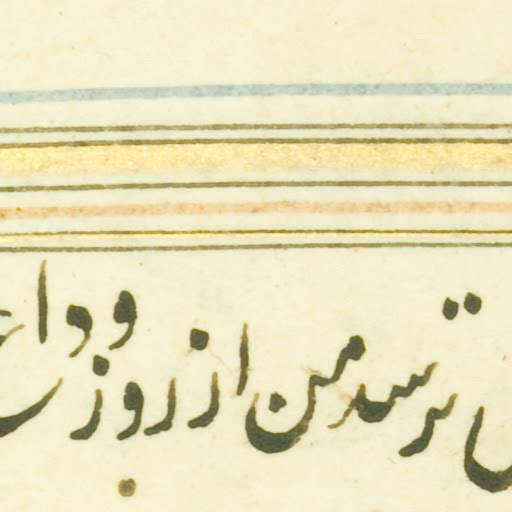 ترسد من از روز وداع